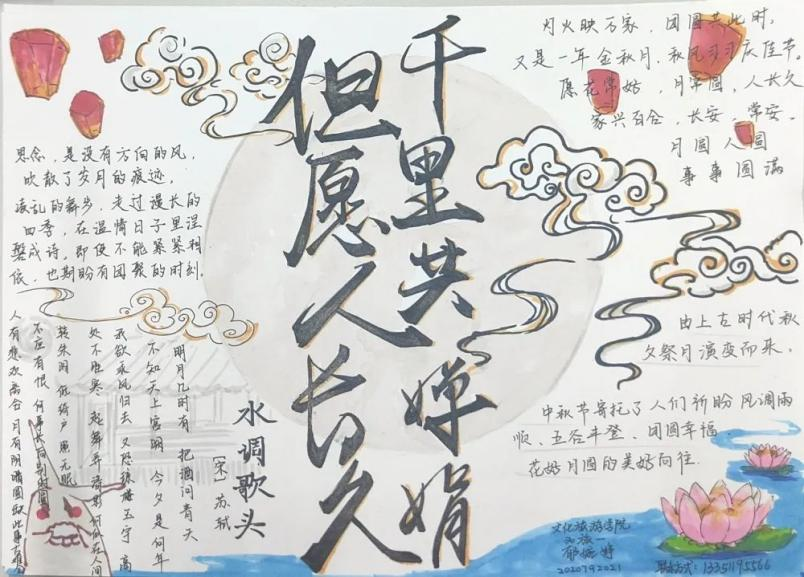 但愿人长久
千里共婵娟
思念，是没有方向的风，
吹散了岁月的痕迹，
凌乱的舞步，走过漫长的
四季，在温情日子里涅
槃成诗，即使不能紧紧相
依，也期盼有团聚的时刻.
灯火映万家，团圆共此时，
又是一年金秋月，秋风习习庆佳节。
愿花常好，月常圆，人长久
家兴百合，长安，常安。
月圆人圆
事事圆满
水调歌头
［宋］苏轼
明月几时有 把酒问青天
不知天上宫阙 今夕是何年
我欲乘风归去 又恐琼楼玉宇 高
处不胜寒 起舞弄清影 何似在人间
转朱阁 低绮户 照无眠
不应有恨 何事长向别时圆
人有悲欢离合 月有阴晴圆缺 此事古难全
由上古时代秋
夕祭月演变而来。
中秋节寄托了人们祈盼风调雨
顺、五谷丰登、团圆幸福
花好月圆的美好向往.
文化旅游学院
2020792021
联系方式：13351195566